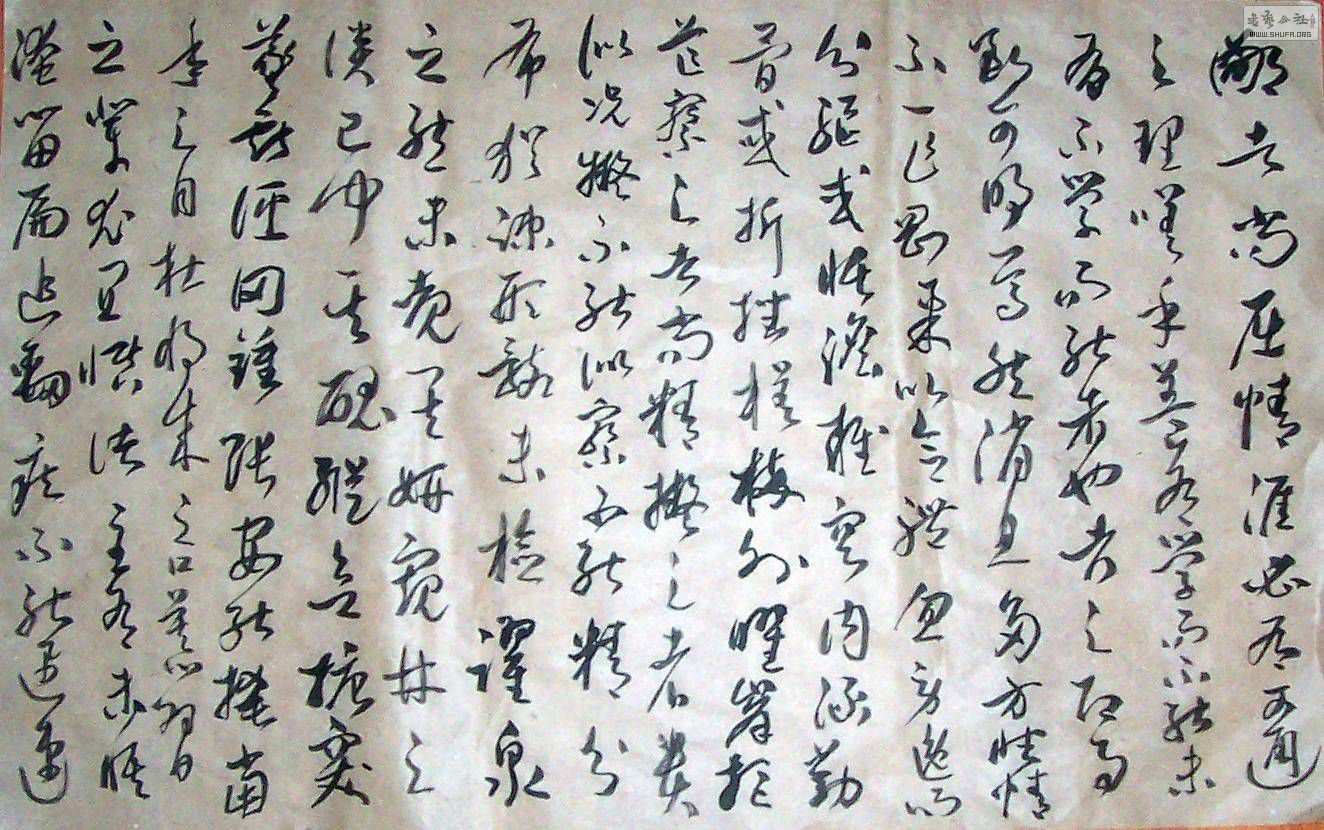 者尚屈情涯必有可通
之理嗟乎蓋有學而不能未
有不學而能者也考之即事
斷可明焉然消息多方性情
不一乍剛柔以合體忽勞逸而
分驅或恬澹雍容內涵筋
骨或折挫槎枿外曜鋒
芒察之者尚精擬之者貴
似況擬不能似察不能精分
布猶疎形骸未檢躍泉
之態未覩其妍窺井之
談已聞其醜縱欲搪突
羲獻誣罔鍾張安能掩當
年之目杜將來之口慕習
之輩尤宜慎諸至有未悟
淹留偏追勁疾不能迅速
WWW.SHUFA.ORG